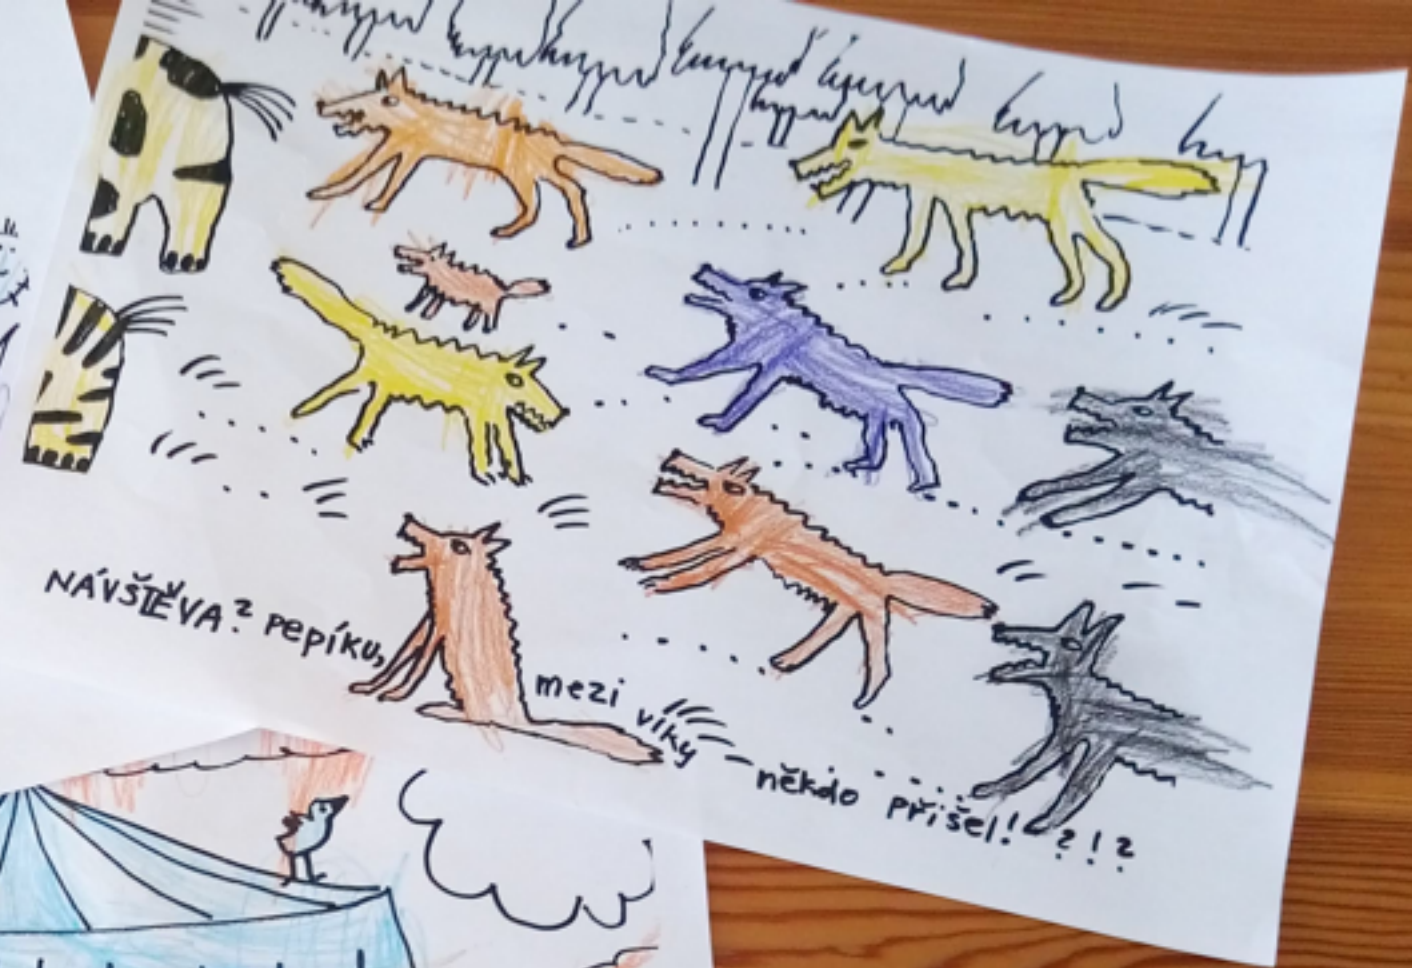 NÁVŠTĚVA? pepíku, mezi vlky někdo přišel! ?!?